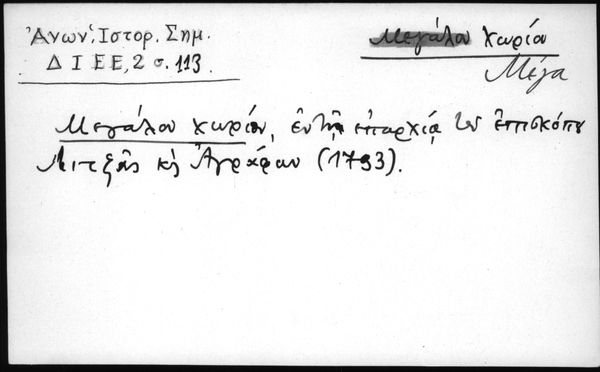 Ἀνων. Ἱστορ. Σημ.
Δ Ι Ε Ε, 2 σ. 113.
Μεγάλου Χωρίου
Μέγα
Μεγάλου χωρίου, ἐν τῇ ἐπαρχίᾳ τοῦ ἐπισκόπου
Λιτζᾶς κὴ Ἀγράφων (1793).